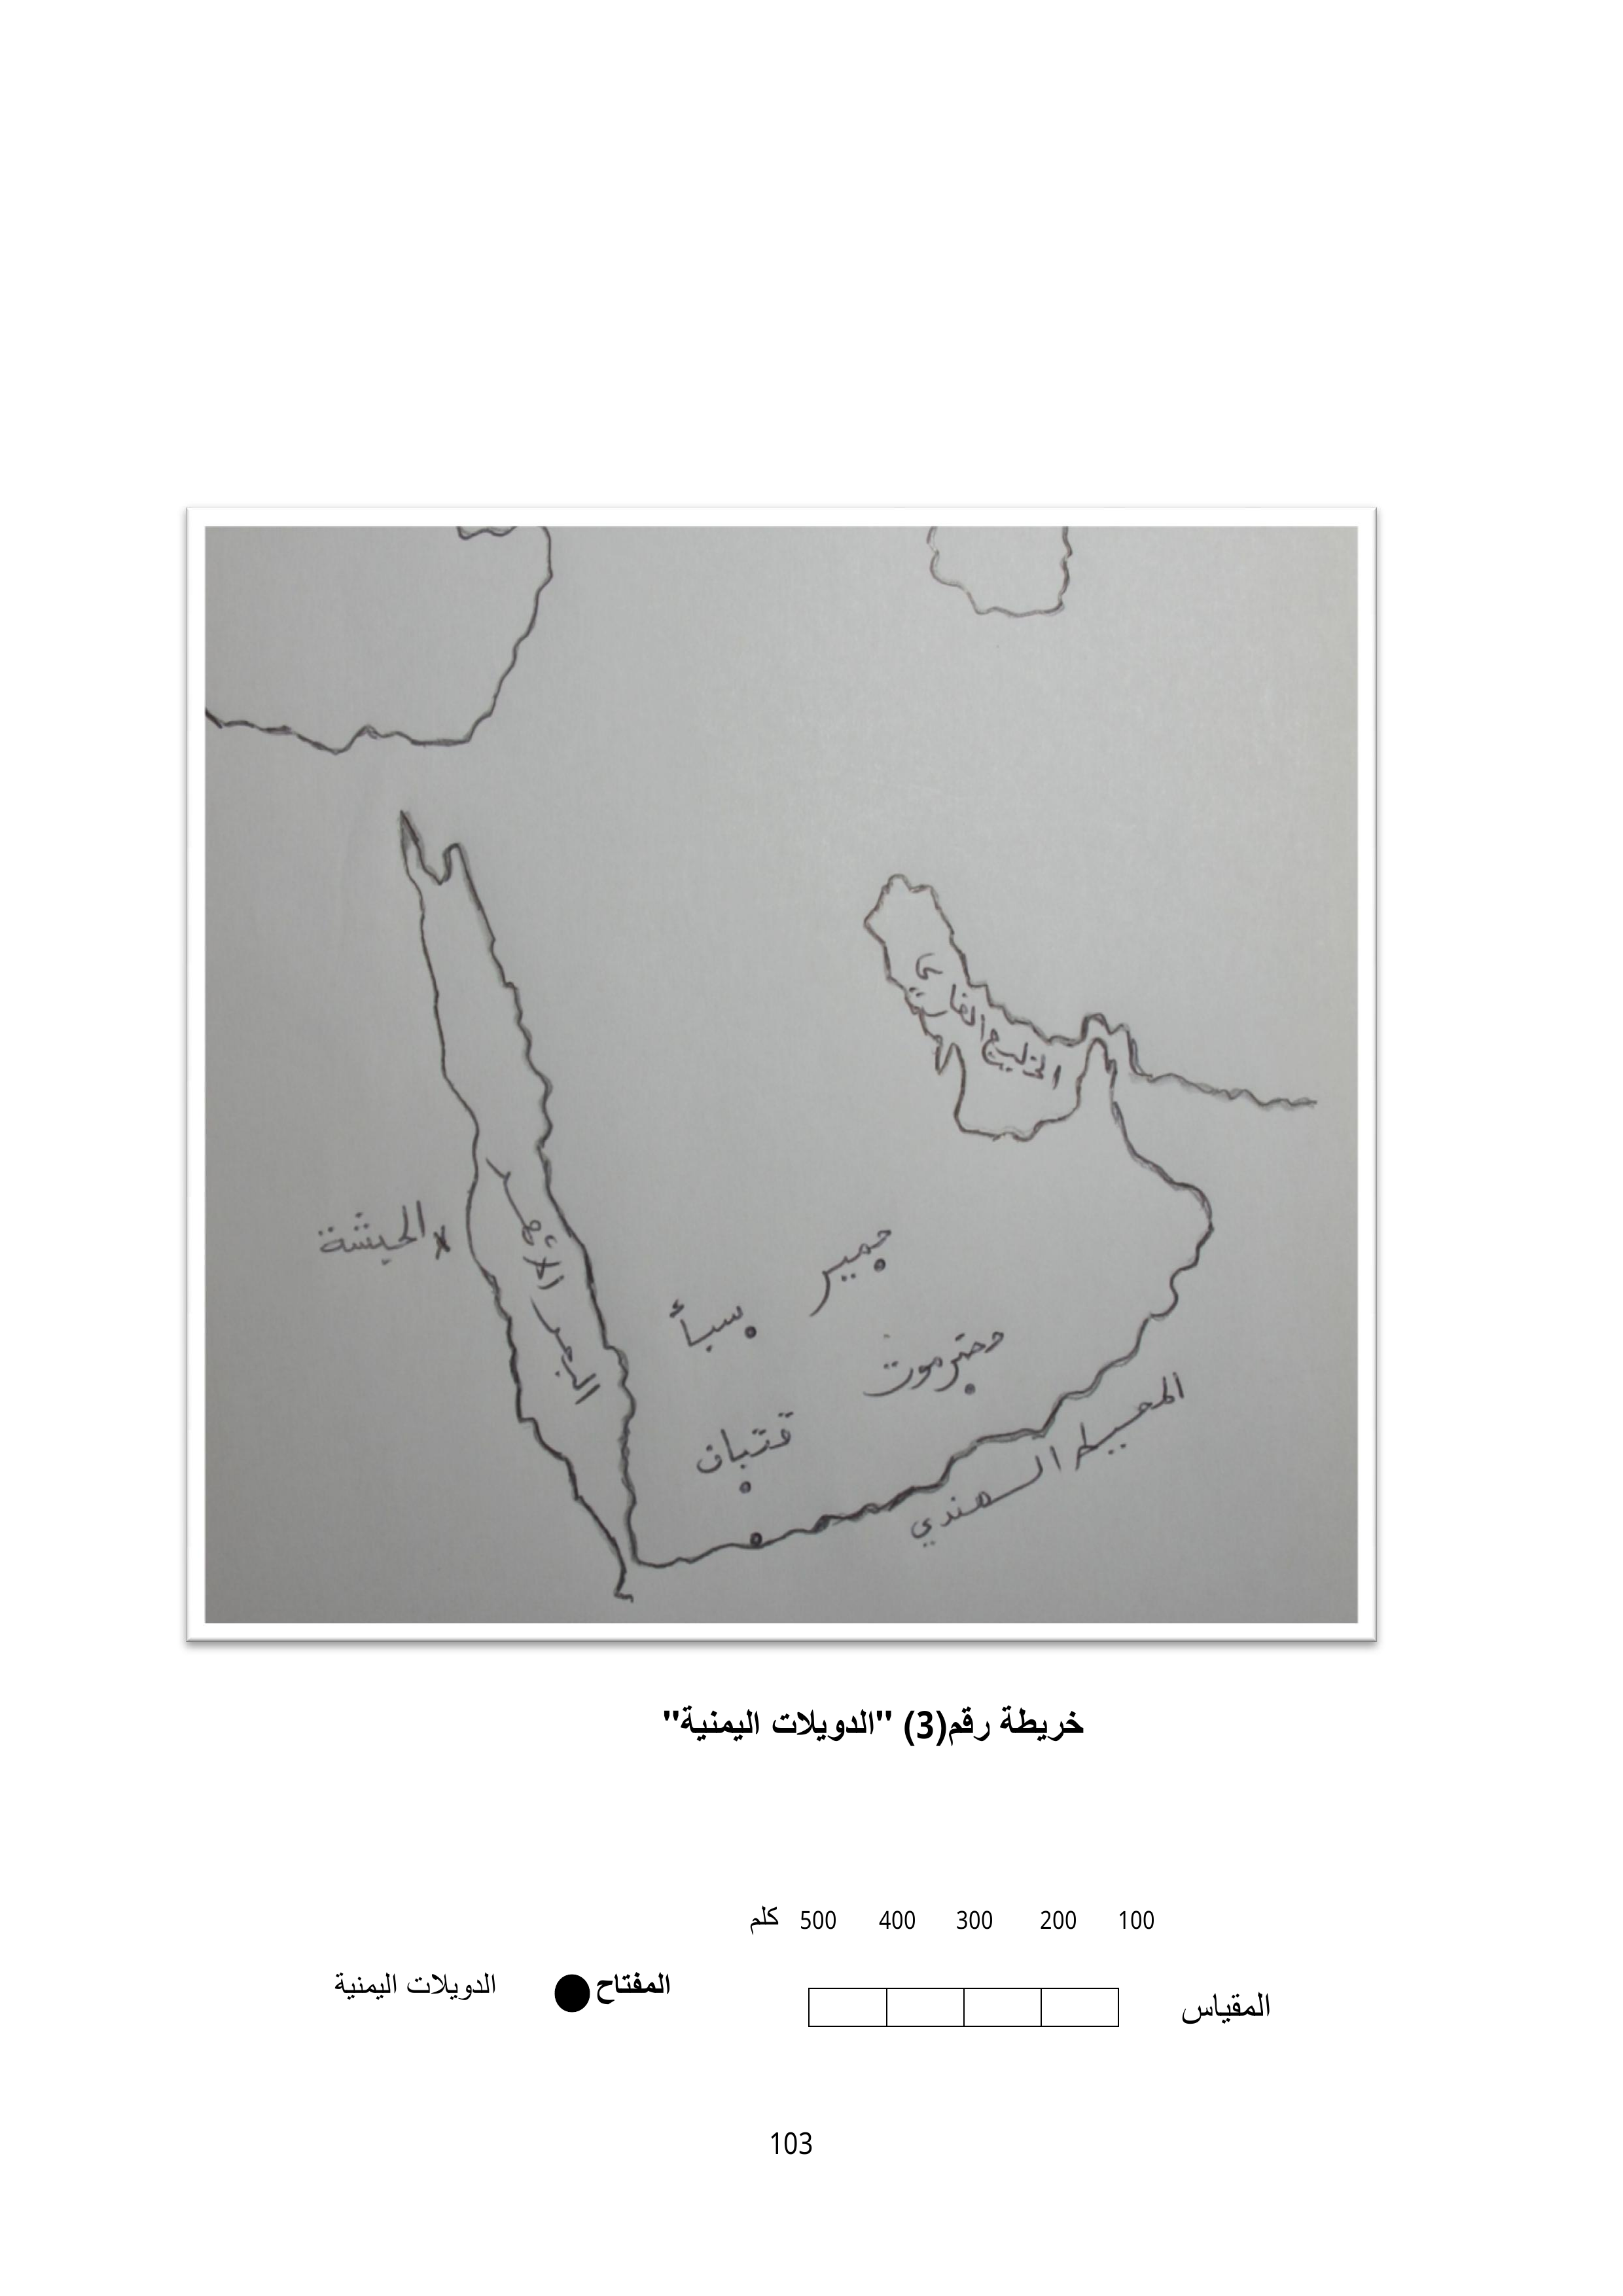 الخليج الفارسي
الحبشة
البحر الأحمر
حمير
سبأ
حضرموت
قتبان
المحيط الهندي
خريطة رقم(3) "الدويلات اليمنية"
100 200 300 400 500 كلم
المقياس
المفتاح الدويلات اليمنية
103